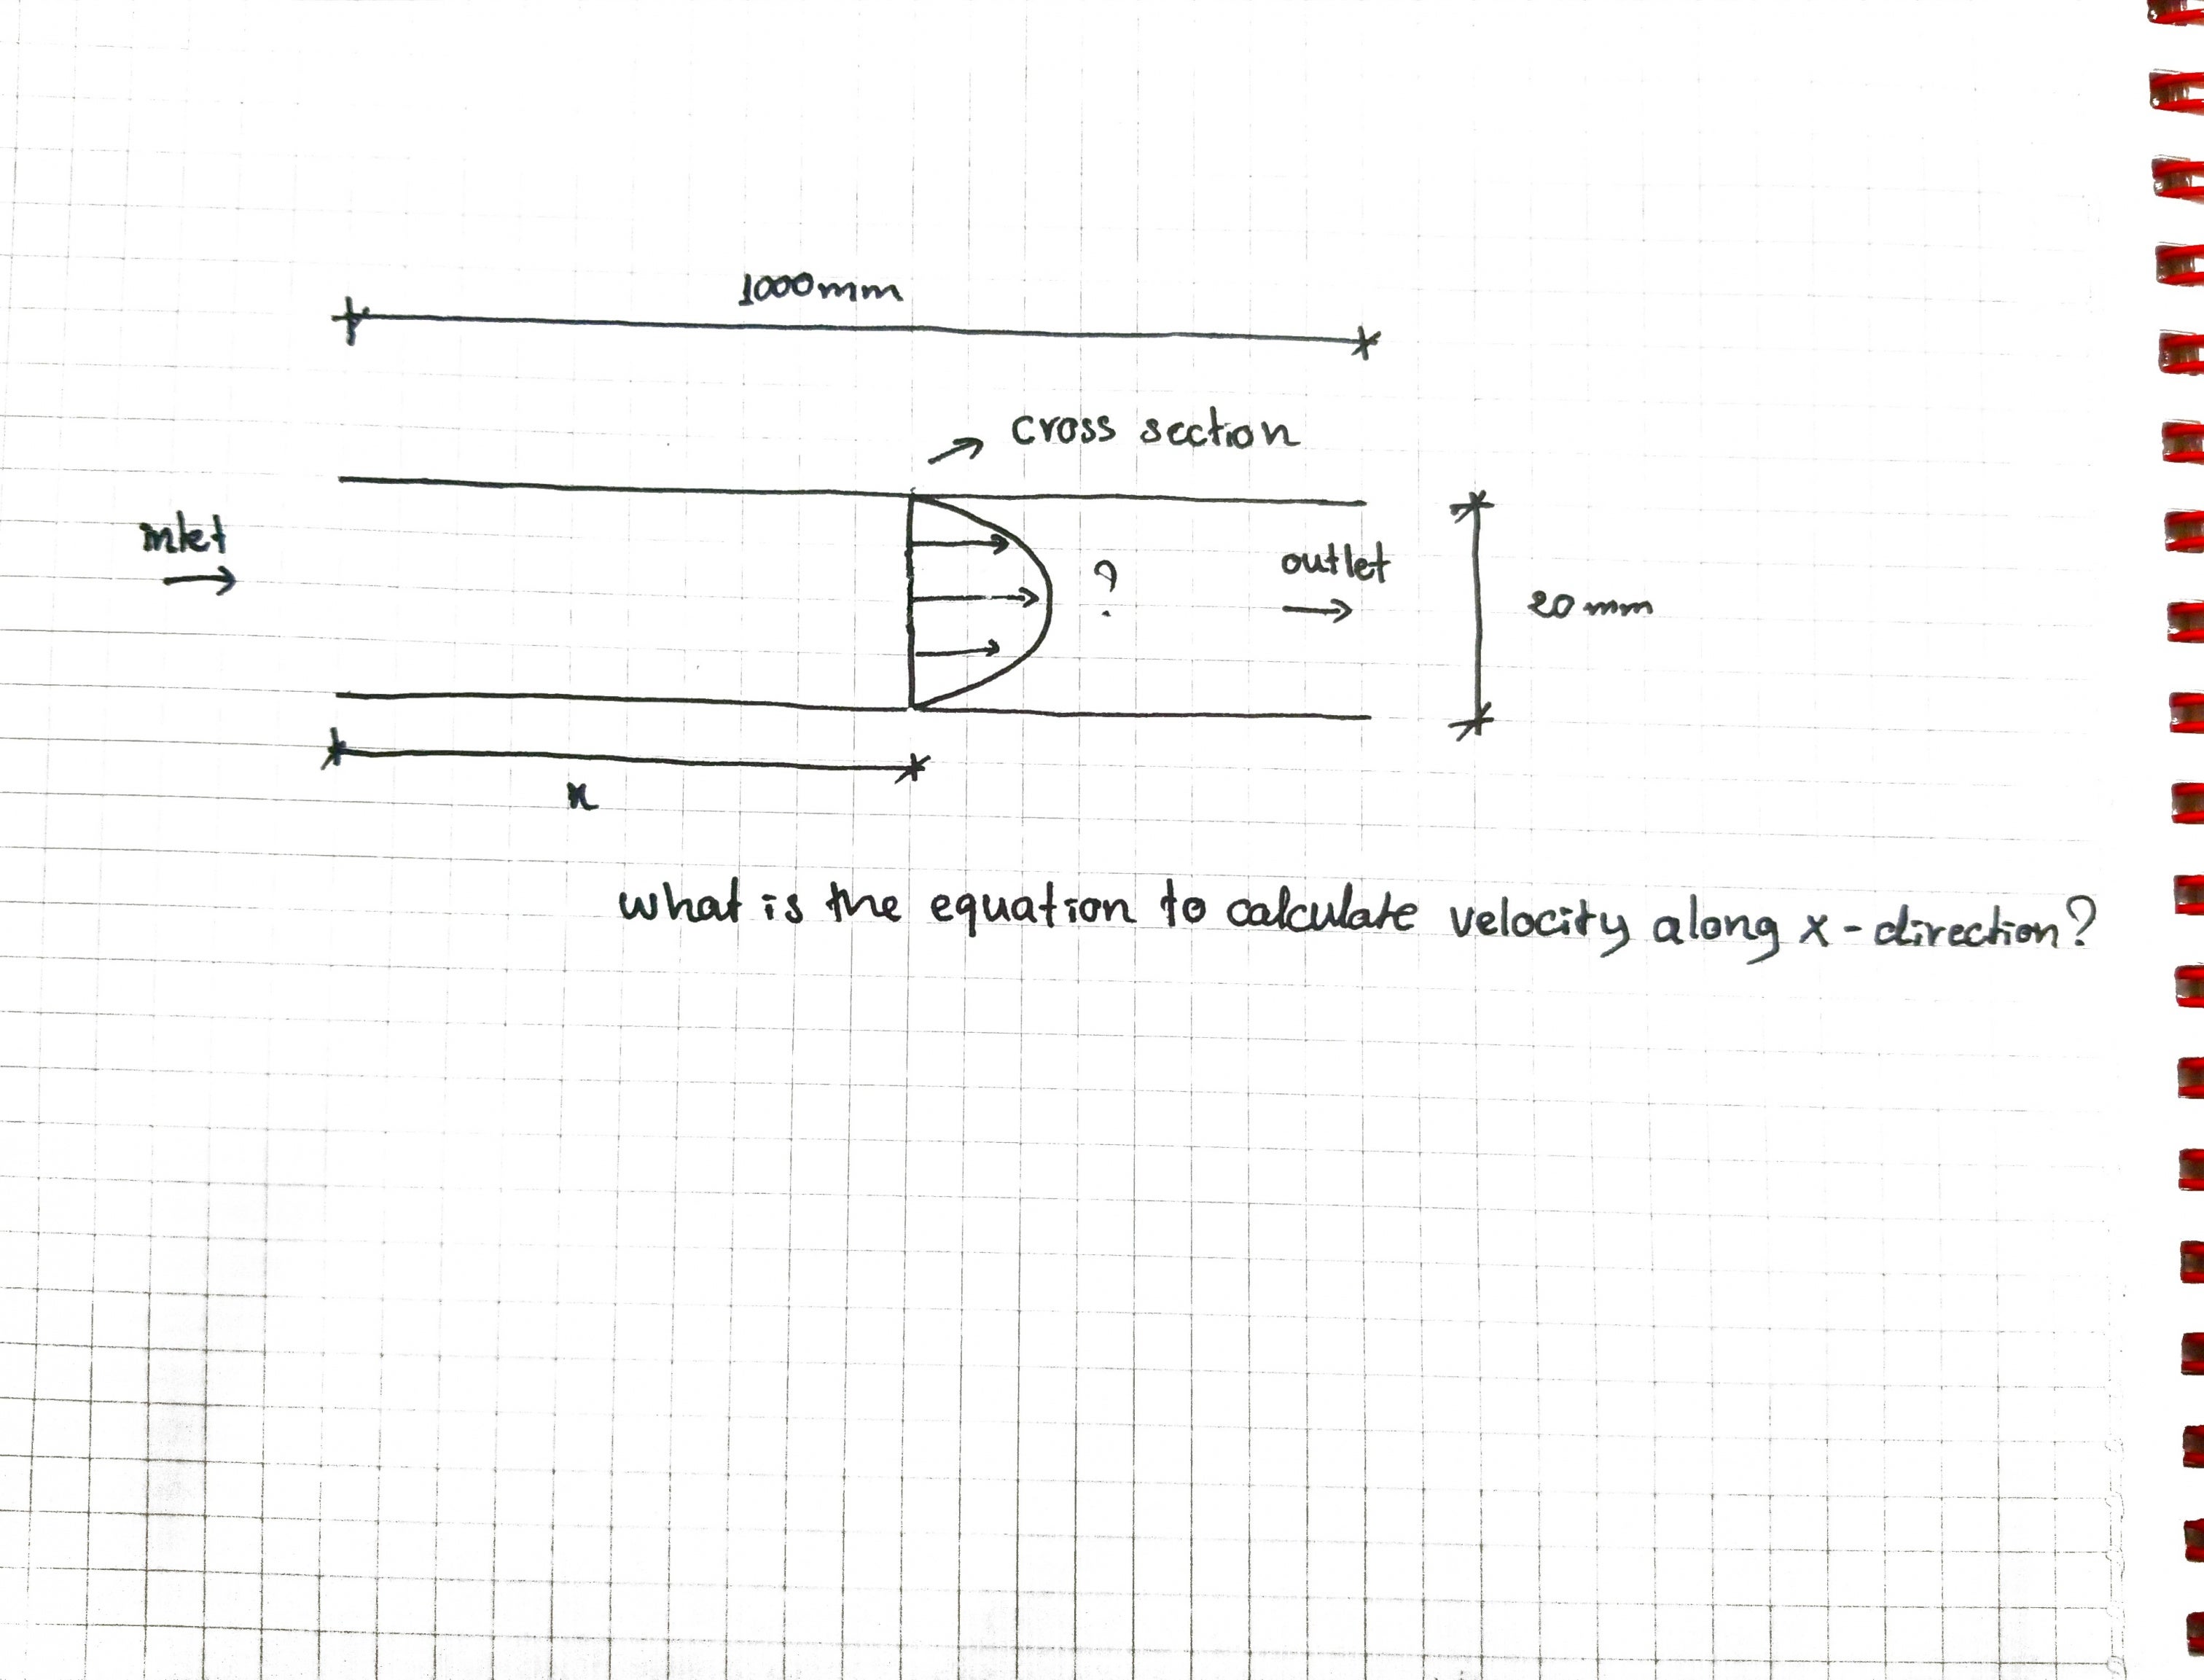 1000mm
cross section
inlet
?
outlet
20mm
x
what is the equation to calculate velocity along x-direction?